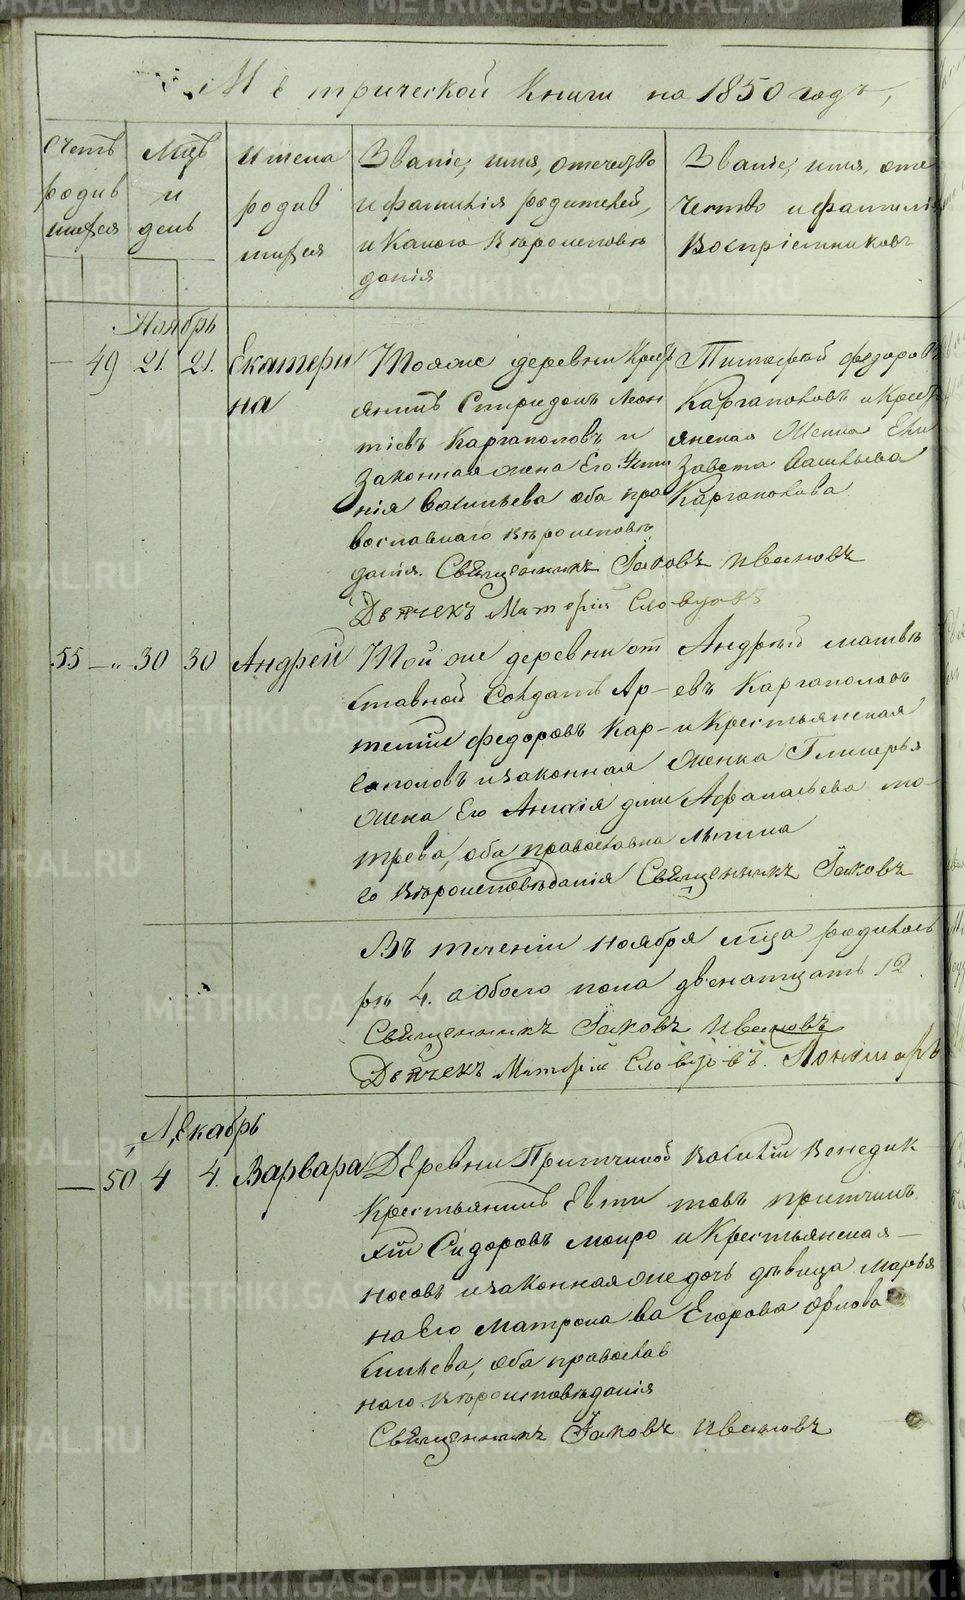 Метрической Книги на 1850 годъ,
Счетъ родив шихся
Мцъ и день
Имена родив шихся
Званіе, имя, отечество
и фамилія родителей,
и какого вѣроисповѣ
данія
Званіе, имя, оте
чество и фамилія
воспріемниковъ
Ноябрь
— 49 21. 21. Екатери
на
Тояже деревни Крест
янинъ Спиридонъ Леон
тіевъ Каргаполовъ и
законная жена Его
нія Васильева оба пра
вославнаго вѣроисповѣ
данія. Священникъ Іаковъ Ивановъ
Дьячекъ Словцовъ
Тимофей федоровъ
Каргаполовъ и Крест
янская Женка Ели
завета Васильева
Каргаполова
55 — „ 30 30 Андрей
Той же деревни от
ставной Солдатъ Ар-
темій федоровъ Кар-
гаполовъ и законная
жена Его дми
трева, оба православна
го вѣроисповѣданія Священникъ Іаковъ
Андрей матвѣ
евъ Каргаполовъ
и Крестьянская
Женка Гликерья
Афанасьева
Въ теченіи ноября мца родилось
4. а обоего пола двенатцать 12.
Священникъ Іаковъ Ивановъ
Дьячекъ Словцовъ.
Декабрь
— 50 4 4. Варвара
Деревни Притчиной
Крестьянинъ Евти
хій Сидоровъ мокро
носовъ и законная же
на Его Матрона Ва
сильева, оба православ
наго вѣроисповѣданія
Священникъ Іаковъ Ивановъ
Василій Венедик
товъ притчинъ
и Крестьянская —
дочь дѣвица Марья
Егорова Орлова
METRIKI.GASO-URAL.RU